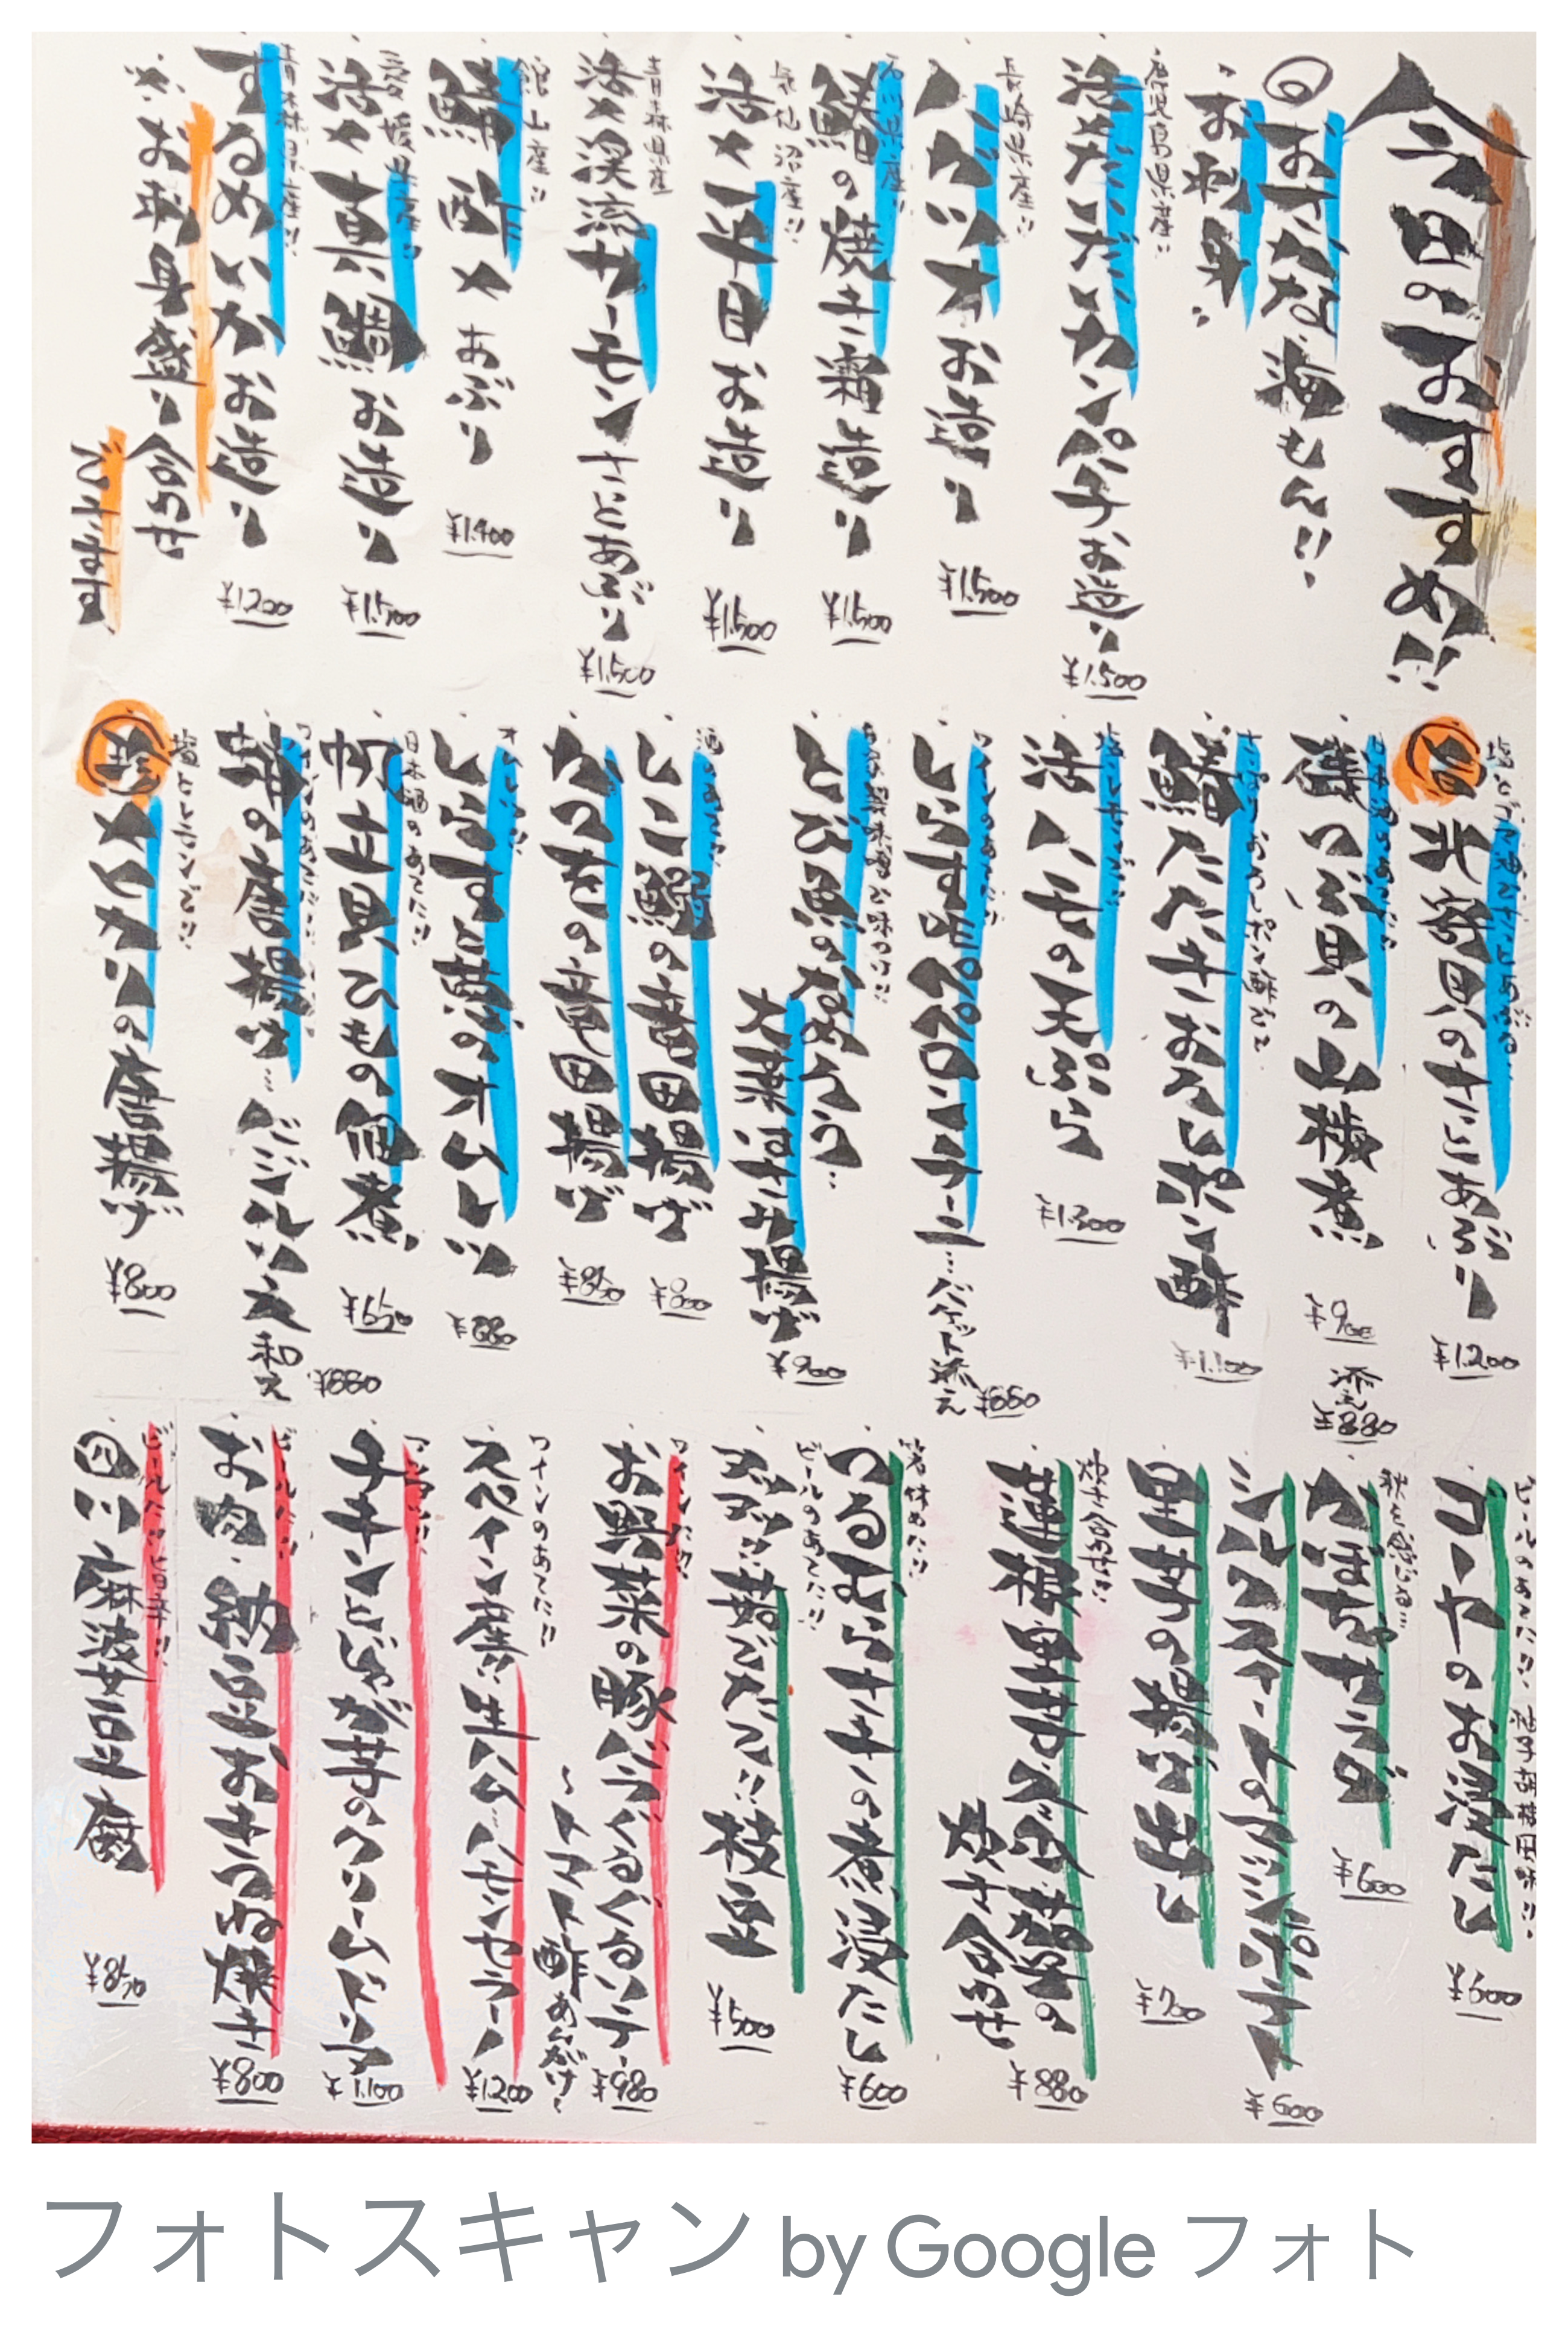 今日のおすすめ!!
日 おさかな海もん!!
お刺身
鹿児島県産!!
活〆だいだいカンパチお造り ¥1.500
長崎県産!!
ハガツオお造り ¥1.500
石川県産!!
鰆の焼き霜造り ¥1.500
気仙沼産!!
活〆平目お造り ¥1.500
青森県産
活〆渓流サーモンさっとあぶり ¥1.500
館山産!!
鯖酢〆あぶり ¥1.400
愛媛県産!!
活〆真鯛お造り ¥1.500
青森県産!!
するめいかお造り ¥1200
※お刺身盛り合わせ
できます
塩とゴマ油でさっとあぶり
旨 北寄貝のさっとあぶり ¥1.200
日本酒のあてに!!
磯つぶ貝の山椒煮 ¥900
さっぱりおろしポン酢で!!
鰆たたきおろしポン酢 ¥1.100
塩レモンで!!
活ハモの天ぷら ¥1.300
ワインのあてに!!
しらすペペロンチーニ…バゲット添え ¥880
とび魚のなめろう…
大葉はさみ揚げ ¥900
酒のあてに!!
しこ鰯の竜田揚げ ¥800
かつをの竜田揚げ ¥850
しらすと葱のオムレツ ¥880
日本酒のあてに!!
帆立貝ひもの佃煮 ¥650
ワインのあてに!!
蛸の唐揚げ…バジルソース和え ¥880
塩とレモンで!!
珍 メヒカリの唐揚げ ¥800
ビールのあてに!! 柚子胡椒風味!!
ゴーヤのお浸たし ¥600
秋を感じる…
かぼちゃサラダ ¥600
シルクスイートのマッシュポテト ¥600
里芋の揚げ出し ¥700
炊き合わせ!!
蓮根 里芋 六白茄子の
炊き合わせ ¥880
箸休めに!!
つるむらさきの煮浸たし ¥600
ビールのあてに!!
アツアツ!! 茹でたて!! 枝豆 ¥500
ワインに!!
お野菜の豚バラぐるぐるソテー
〜トマト酢あんがけ〜 ¥980
ワインのあてに!!
スペイン産!! 生ハム ハモンセラーノ ¥1200
アツアツ!!
チキンとじゃが芋のクリームドリア ¥1.100
ビールに!!
お肉・納豆おきつね焼き ¥800
ビールに!! 旨辛!!
四川麻婆豆腐 ¥850
フォトスキャン by Google フォト